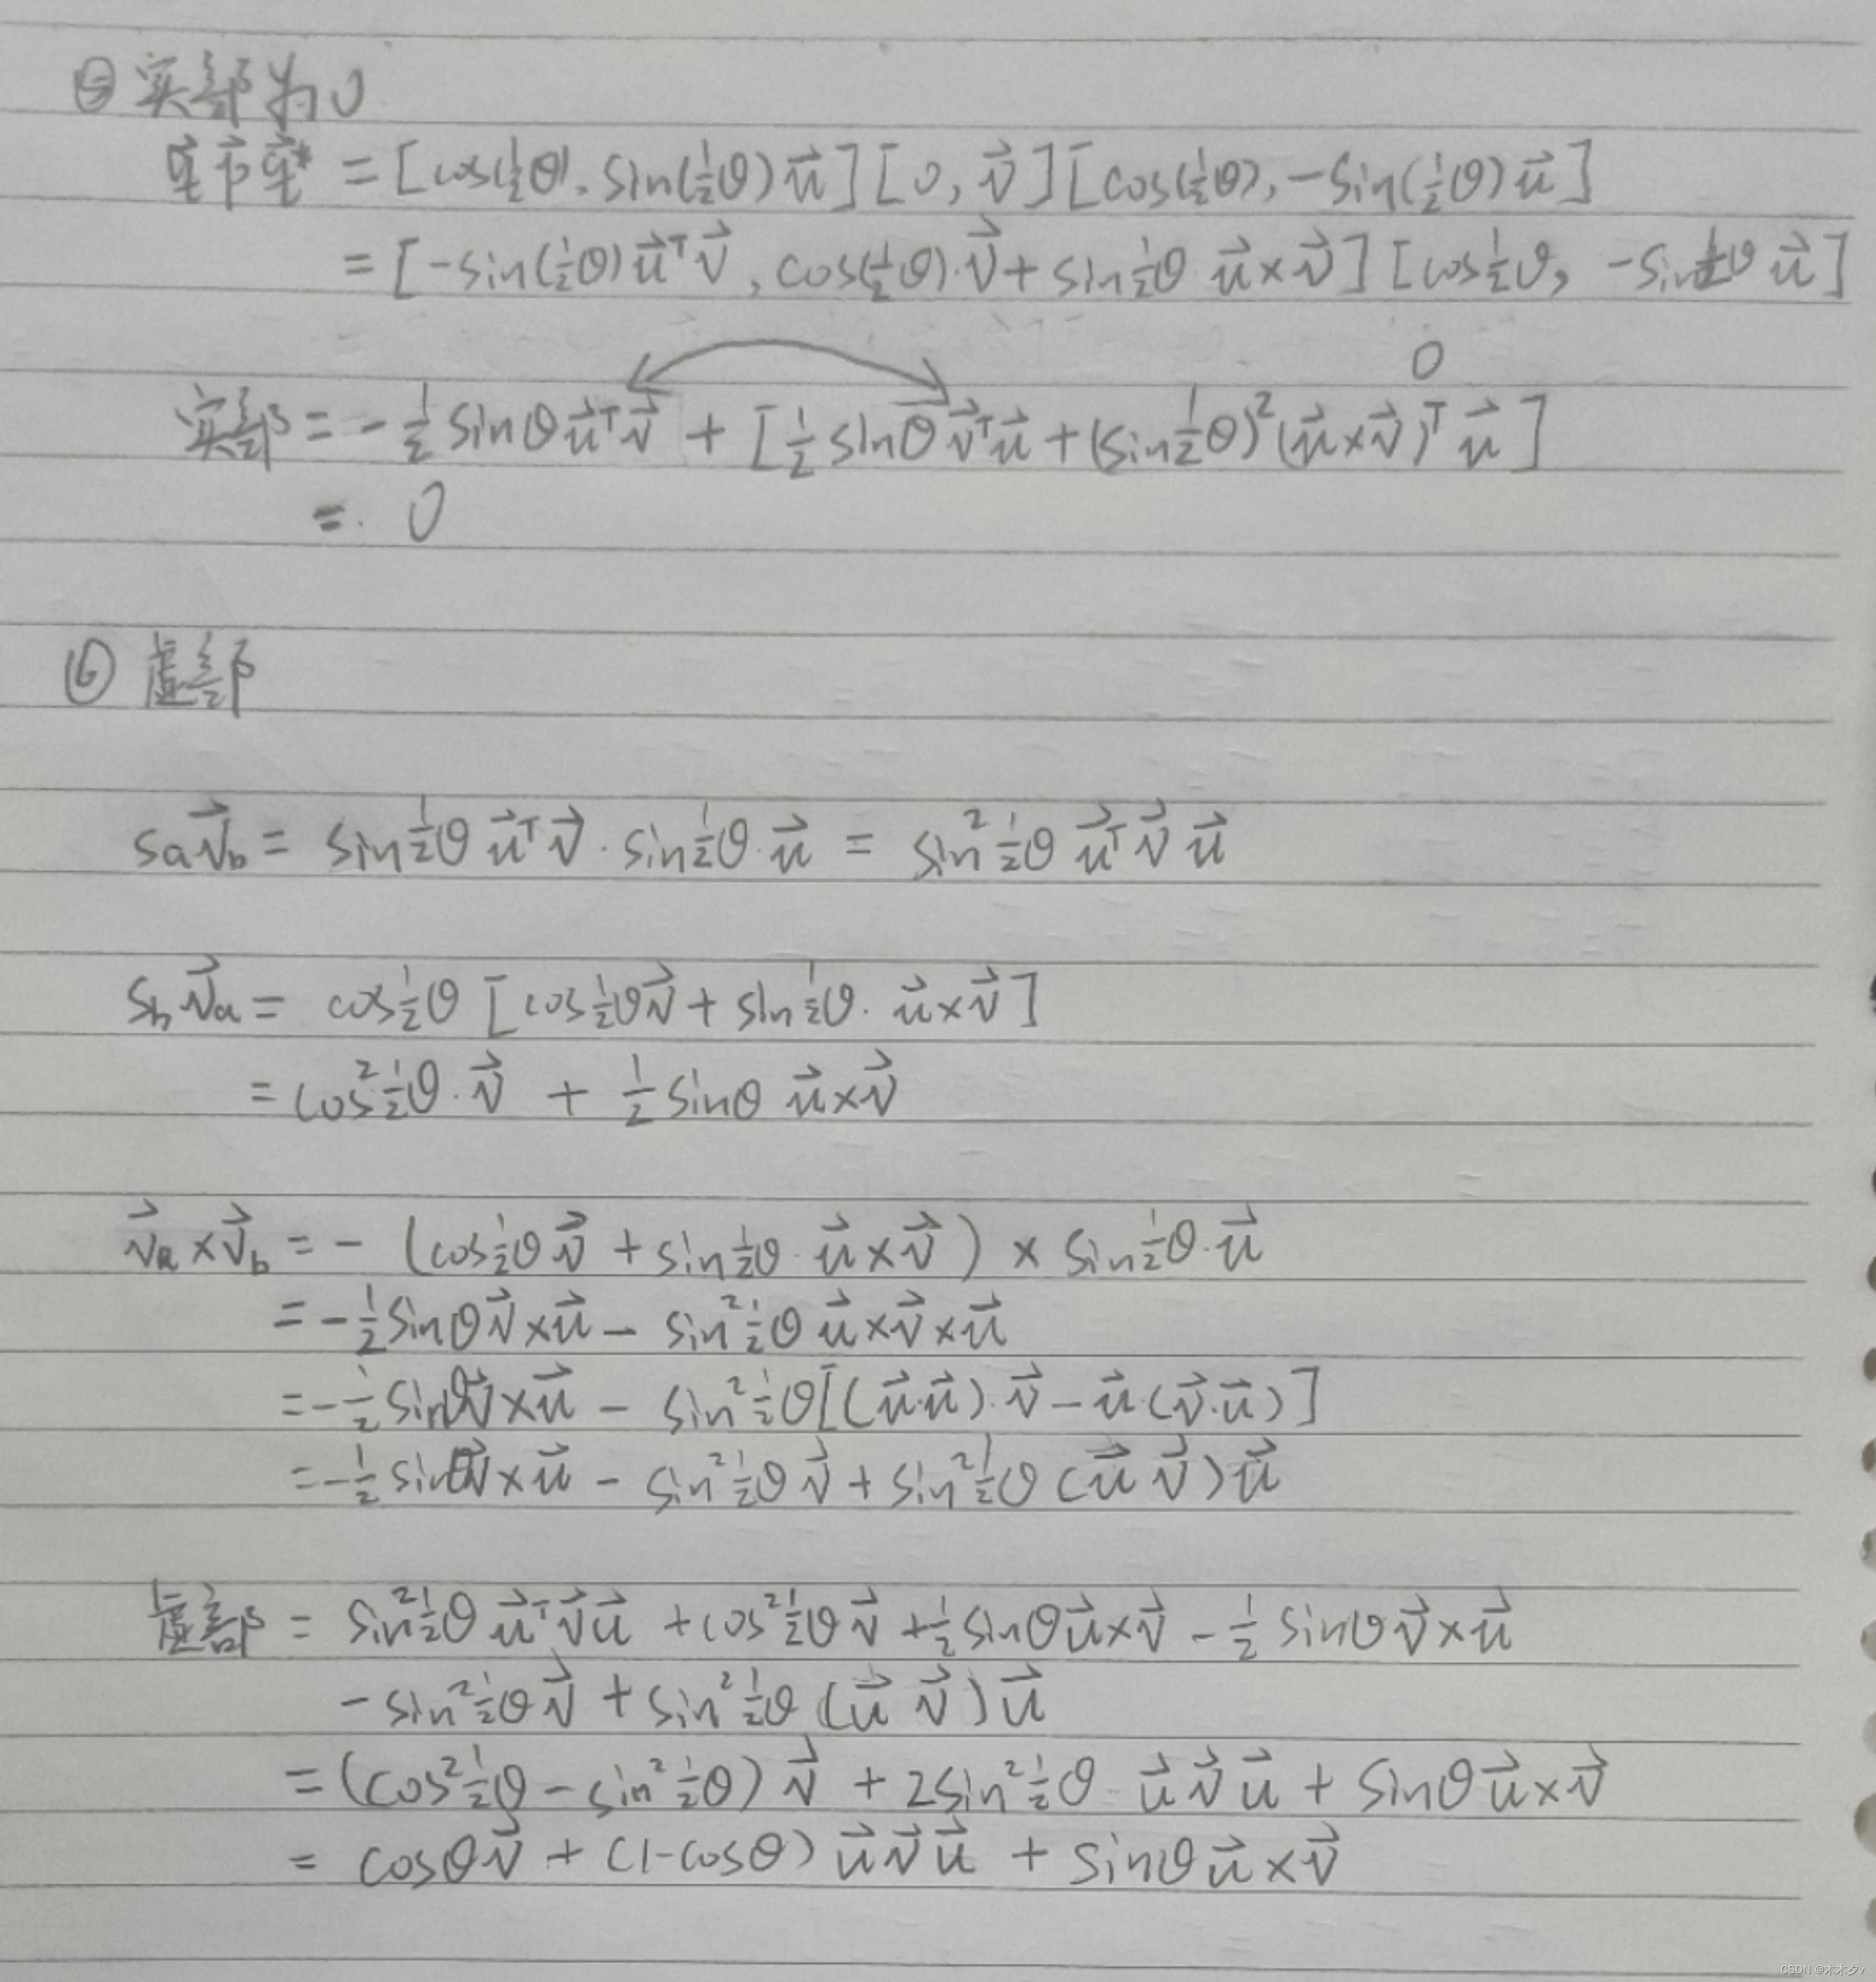 ⑤ 实部为0
q⃗ p⃗ q⃗* = [cos(½θ), sin(½θ)u⃗][0, v⃗][cos(½θ), -sin(½θ)u⃗]
= [-sin(½θ)u⃗ᵀv⃗, cos(½θ)·v⃗ + sin½θ u⃗×v⃗][cos½θ, -sin½θ u⃗]
0
实部 = -½ sinθ u⃗ᵀv⃗ + [½ sinθ v⃗ᵀu⃗ + (sin½θ)²(u⃗×v⃗)ᵀ u⃗]
= 0
⑥ 虚部
sa v⃗b = sin½θ u⃗ᵀv⃗ · sin½θ·u⃗ = sin²½θ u⃗ᵀv⃗ u⃗
sb v⃗a = cos½θ [cos½θ v⃗ + sin½θ· u⃗×v⃗]
= cos²½θ·v⃗ + ½ sinθ u⃗×v⃗
v⃗a×v⃗b = - (cos½θ v⃗ + sin½θ· u⃗×v⃗) × sin½θ·u⃗
= -½ sinθ v⃗×u⃗ - sin²½θ u⃗×v⃗×u⃗
= -½ sinθ v⃗×u⃗ - sin²½θ[(u⃗·u⃗)·v⃗ - u⃗·(v⃗·u⃗)]
= -½ sinθ v⃗×u⃗ - sin²½θ v⃗ + sin²½θ (u⃗ v⃗)u⃗
虚部 = sin²½θ u⃗ᵀv⃗u⃗ + cos²½θ v⃗ + ½ sinθ u⃗×v⃗ - ½ sinθ v⃗×u⃗
- sin²½θ v⃗ + sin²½θ (u⃗ v⃗)u⃗
= (cos²½θ - sin²½θ) v⃗ + 2sin²½θ· u⃗ v⃗ u⃗ + sinθ u⃗×v⃗
= cosθ v⃗ + (1-cosθ) u⃗ v⃗ u⃗ + sinθ u⃗×v⃗
CSDN @木木夕v